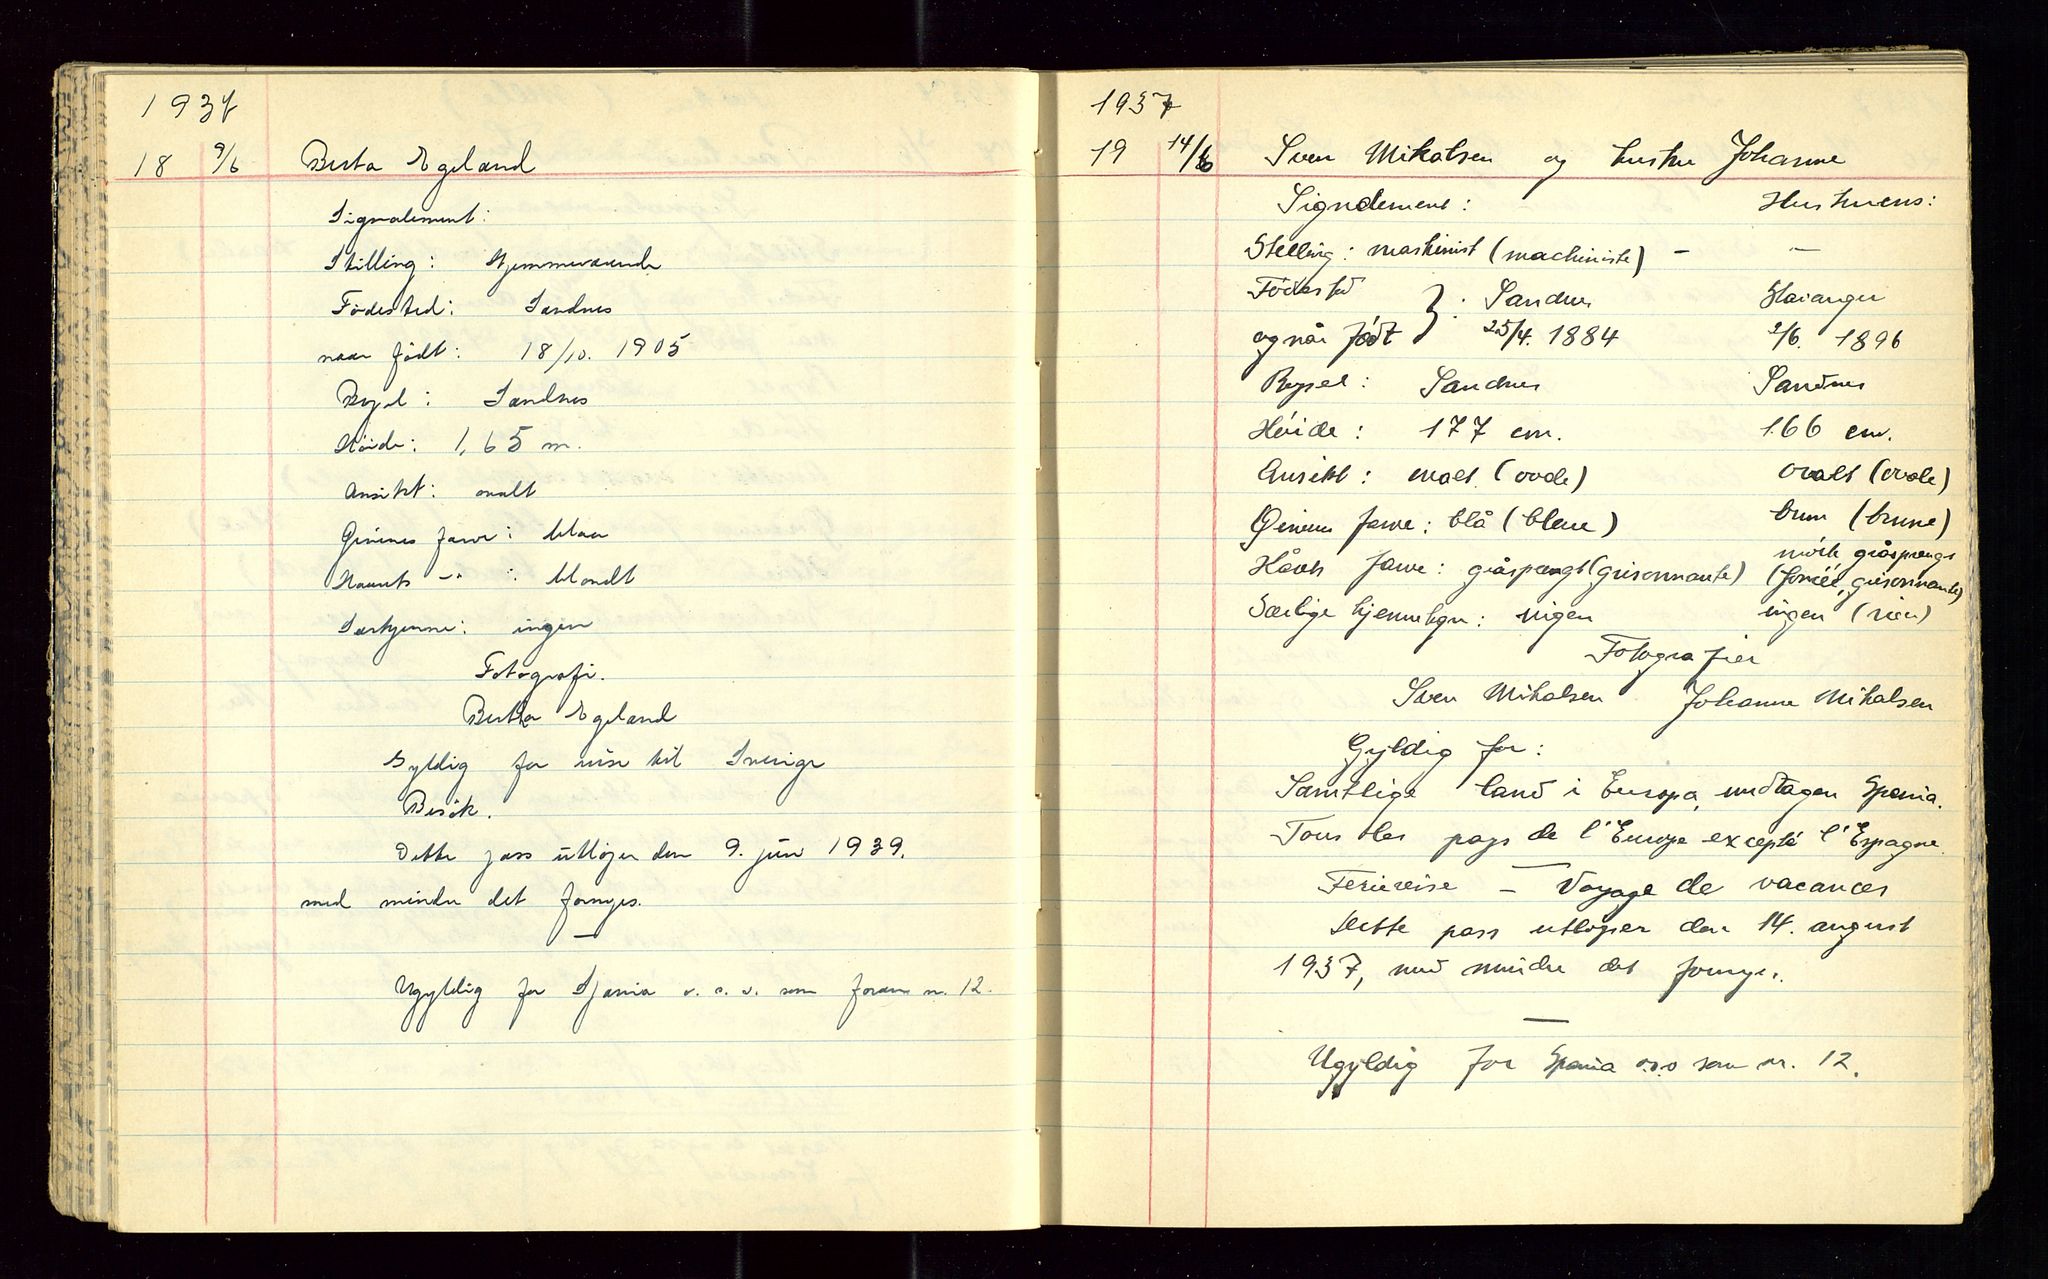 1937
18 9/6 Berta Egeland
Signalement:
Stilling: Hjemmeværende
Fødested: Sandnes
naar født: 18/10. 1905
Bopel: Sandnes
Høide: 1,65 m.
Ansikt: ovalt
Øinenes farve: blaa
Haarets -"- : blondt
Særkjenne: ingen
Fotografi.
Berta Egeland
Gyldig for reise til Sverige
Besøk.
Dette pass utløper den 9. juni 1939.
med mindre det fornyes.
—
Ugyldig for Spania o. s. v. som foran nr. 12.
1937
19 14/6 Sven Mikalsen og hustru Johanne
Signalement: Hustruens:
Stilling: maskinist (machiniste) – –
Fødested
og når født } : Sandnes
25/4. 1884 2/6. 1896
Bopel: Sandnes Sandnes
Høide: 177 cm. 166 cm.
Ansikt: ovalt (ovale) ovalt (ovale)
Øinenes farve: blå (bleue) brun (brune)
Hårets farve: gråsprengt (grisonnante) mørk gråsprengt
(foncée, grisonnante)
Særlige kjennetegn: ingen ingen (rien)
Fotografier
Sven Mikalsen Johanne Mikalsen
Gyldig for:
Samtlige land i Europa, undtagen Spania.
Tous les pays de l'Europe excepté l'Espagne.
Feriereise – Voyage de vacances
Dette pass utløper den 14. august
1937, med mindre det fornyes.
—
Ugyldig for Spania o.s.v som nr. 12.